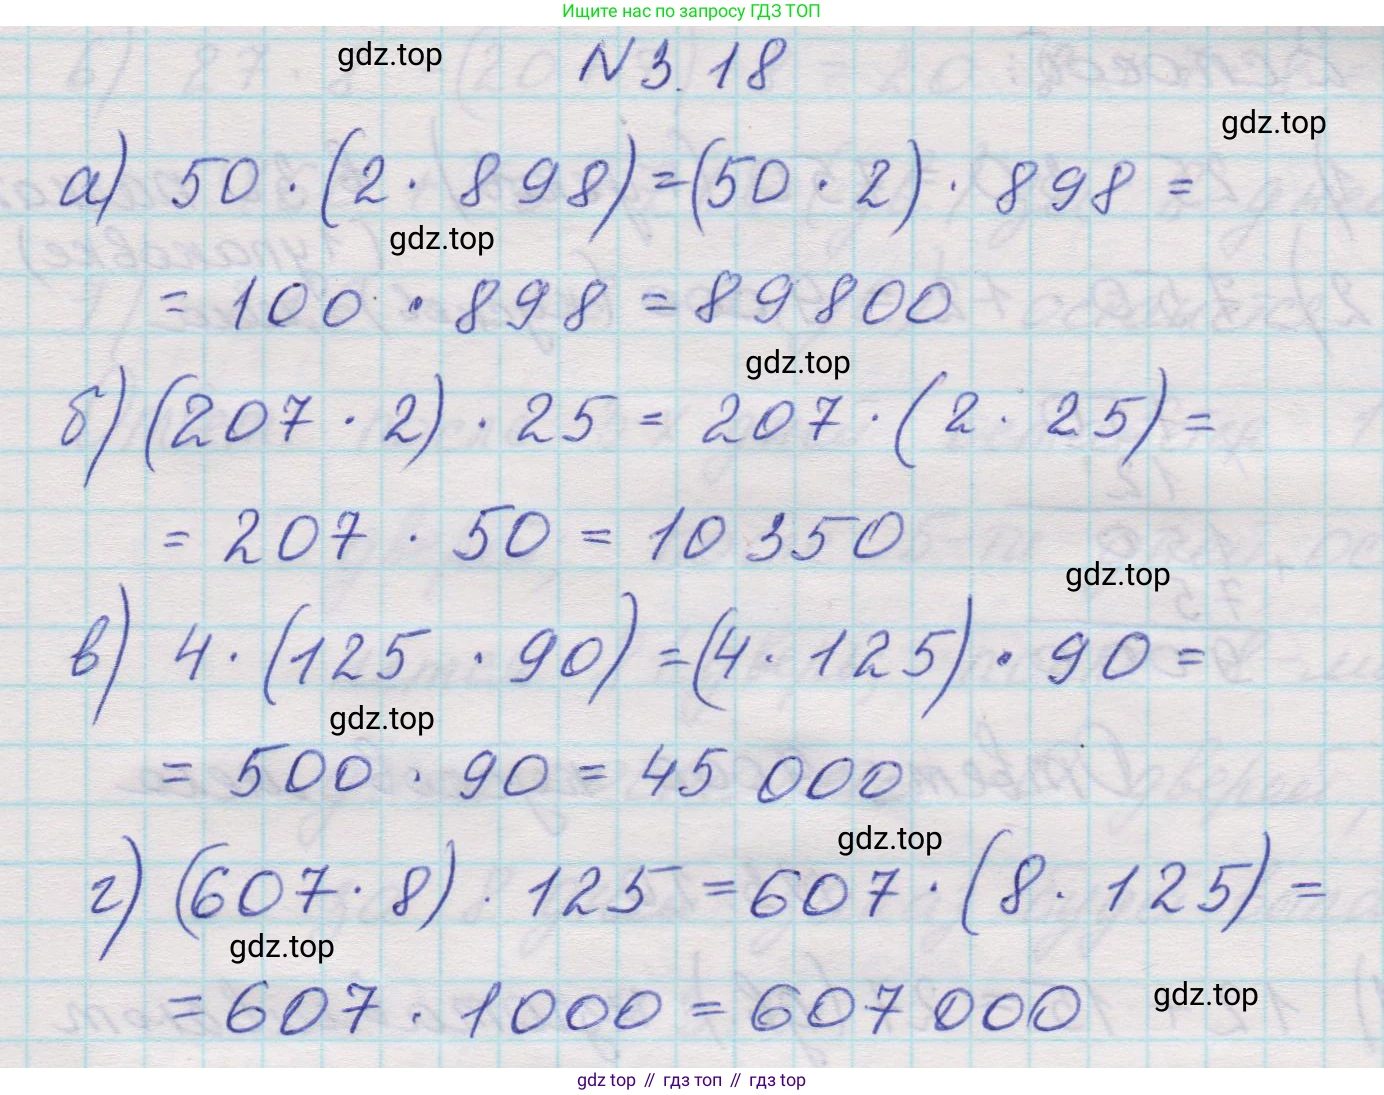 Ищите нас по запросу ГДЗ ТОП
gdz.top
N 3.18
gdz.top
а) 50 · (2 · 898) = (50 · 2) · 898 =
gdz.top
= 100 · 898 = 89800
gdz.top
б) (207 · 2) · 25 = 207 · (2 · 25) =
= 207 · 50 = 10 350
gdz.top
в) 4 · (125 · 90) = (4 · 125) · 90 =
gdz.top
= 500 · 90 = 45 000
gdz.top
г) (607 · 8) · 125 = 607 · (8 · 125) =
gdz.top
= 607 · 1000 = 607 000
gdz.top
gdz top // гдз топ // гдз top